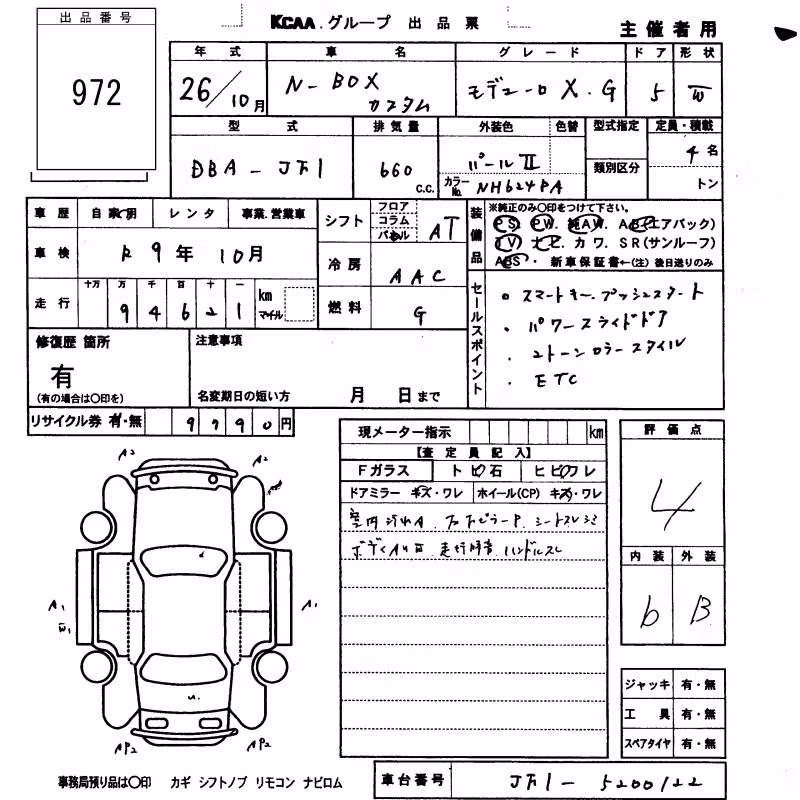 出品番号
972
KCAA.グループ 出品票
主催者用
年式 車名 グレード ドア 形状
26/10月 N-BOX カスタム モデューロX.G 5 W
型式 排気量 外装色 色替 型式指定 定員・積載
DBA-JF1 660 c.c. パールⅡ 類別区分 4名
カラーNo. NH624PA トン
車歴 自家用 レンタ 事業.営業車
シフト フロア コラム パネル AT
装備品 ※純正のみ○印をつけて下さい。
PS. PW. 純AW. AB(エアバック)
TV) ナビ. カワ. SR(サンルーフ)
ABS・ 新車保証書←(注)後日送りのみ
車検 R9年10月
冷房 AAC
走行 十万 万 千 百 十 一
94621 km マイル
燃料 G
セールスポイント
・スマートキー.プッシュスタート
・パワースライドドア
・2トーンカラースタイル
・ETC
修復歴 箇所
有
(有の場合は○印を)
注意事項
名変期日の短い方 月 日まで
リサイクル券 有・無 9790円
現メーター指示 km
【査定員記入】
Fガラス トビ石 ヒビワレ
ドアミラー キズ・ワレ ホイール(CP) キズ・ワレ
室内汚れA.
走行 ハンドルスレ
評価点
4
内装 外装
b B
A2 A2
A1 A1
W1
u.
AP2 AP2
ジャッキ 有・無
工具 有・無
スペアタイヤ 有・無
事務局預り品は○印 カギ シフトノブ リモコン ナビロム
車台番号 JF1-5200122